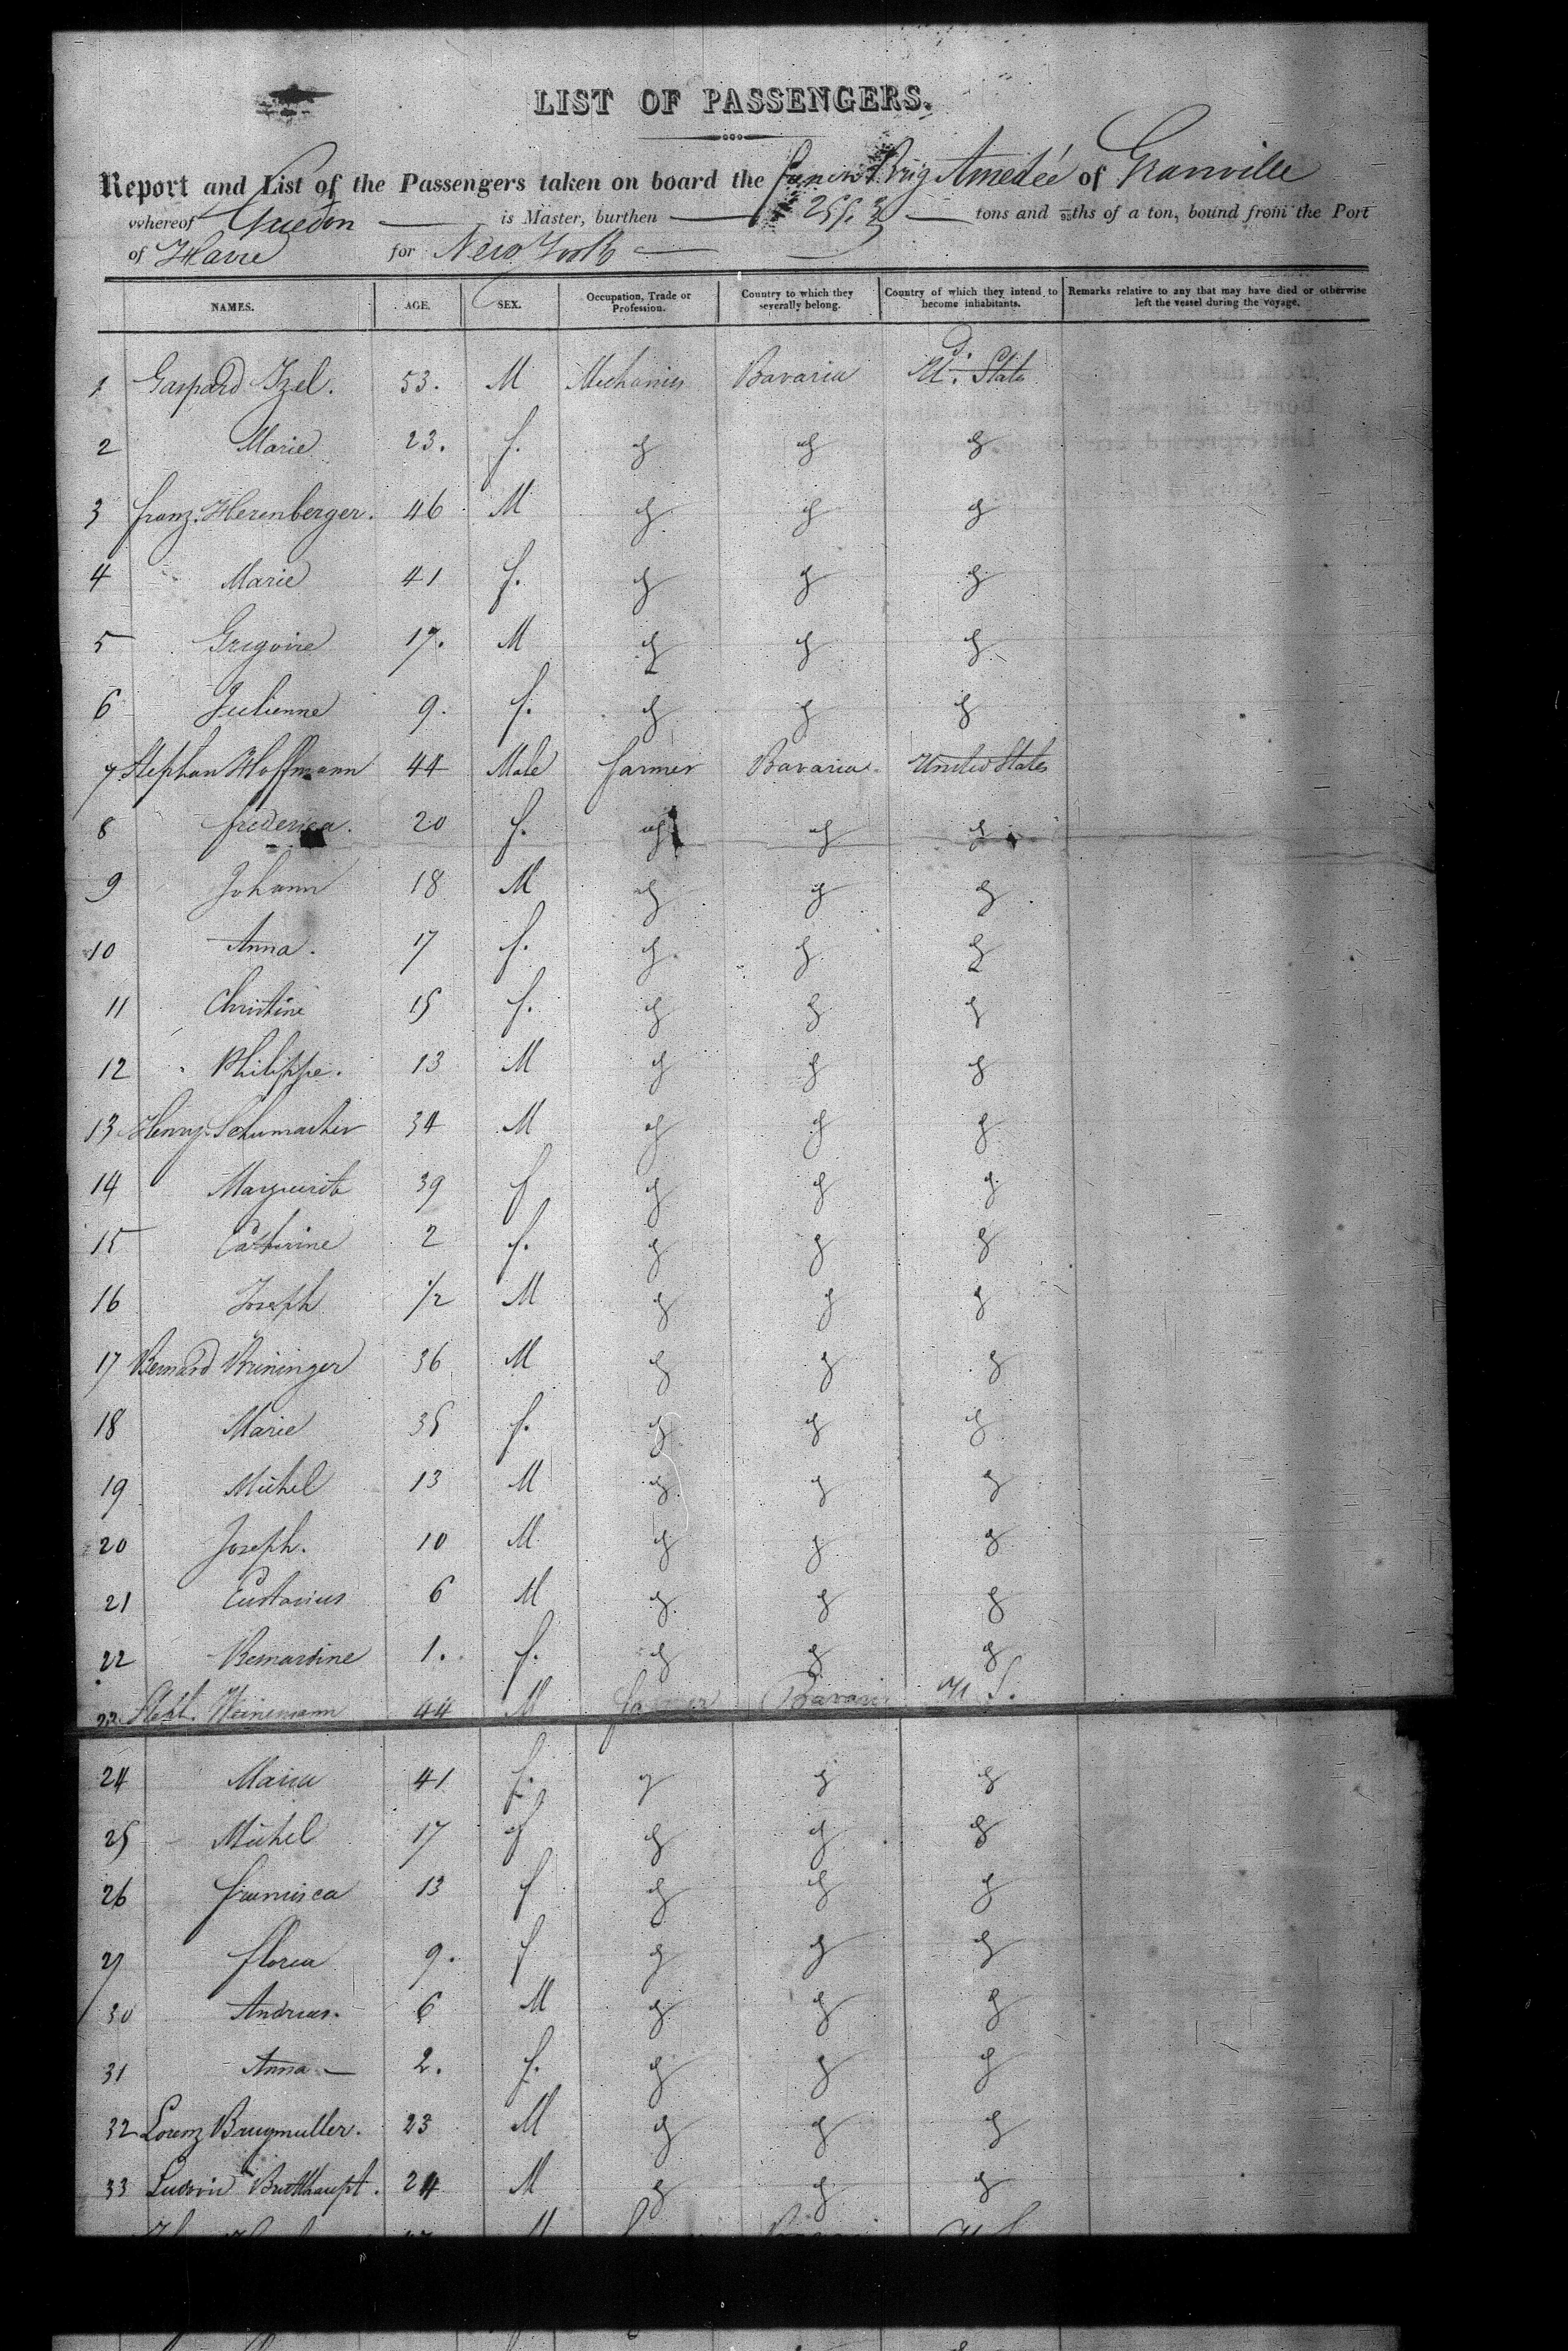 LIST OF PASSENGERS.
Report and List of the Passengers taken on board the french Brig Amedée of Granville
whereof Guedon is Master, burthen tons and 95ths of a ton, bound from the Port
of Havre for New York
NAMES. AGE. SEX. Occupation, Trade or Profession. Country to which they severally belong. Country of which they intend to become inhabitants. Remarks relative to any that may have died or otherwise left the vessel during the voyage.
1 Gaspard Izel. 53. M Mechanics Bavaria U. States
2 Marie 23. f. d d d
3 franz. Herenberger. 46 M d d d
4 Marie 41 f. d d d
5 Gregoire 17. M d d d
6 Julienne 9. f. d d d
7 Stephan Hoffmann 44 Male farmer Bavaria United States
8 frederica. 20 f. d d d
9 Johann 18 M d d d
10 Anna. 17 f. d d d
11 Christine 15 f. d d d
12 Philippe. 13 M d d d
13 Henry Schumacher 34 M d d d
14 Marguerite 39 f d d d
15 Catherine 2 f. d d d
16 Joseph 1/2 M d d d
17 Bernard Brininger 36 M d d d
18 Marie 35 f. d d d
19 Michel 13 M d d d
20 Joseph. 10 M d d d
21 Eustasius 6 M d d d
22 Bernardine 1. f. d d d
23 Steph. Heinemann 44 M farmer Bavari U S.
24 Maria 41 f. d d d
25 Michel 17 f d d d
26 francisca 13 f d d d
27 florea 9. f d d d
30 Andreas. 6 M d d d
31 Anna 2. f. d d d
32 Lorenz Brugmuller. 23 M d d d
33 Ludovic Brotthaupt. 24 M d d d